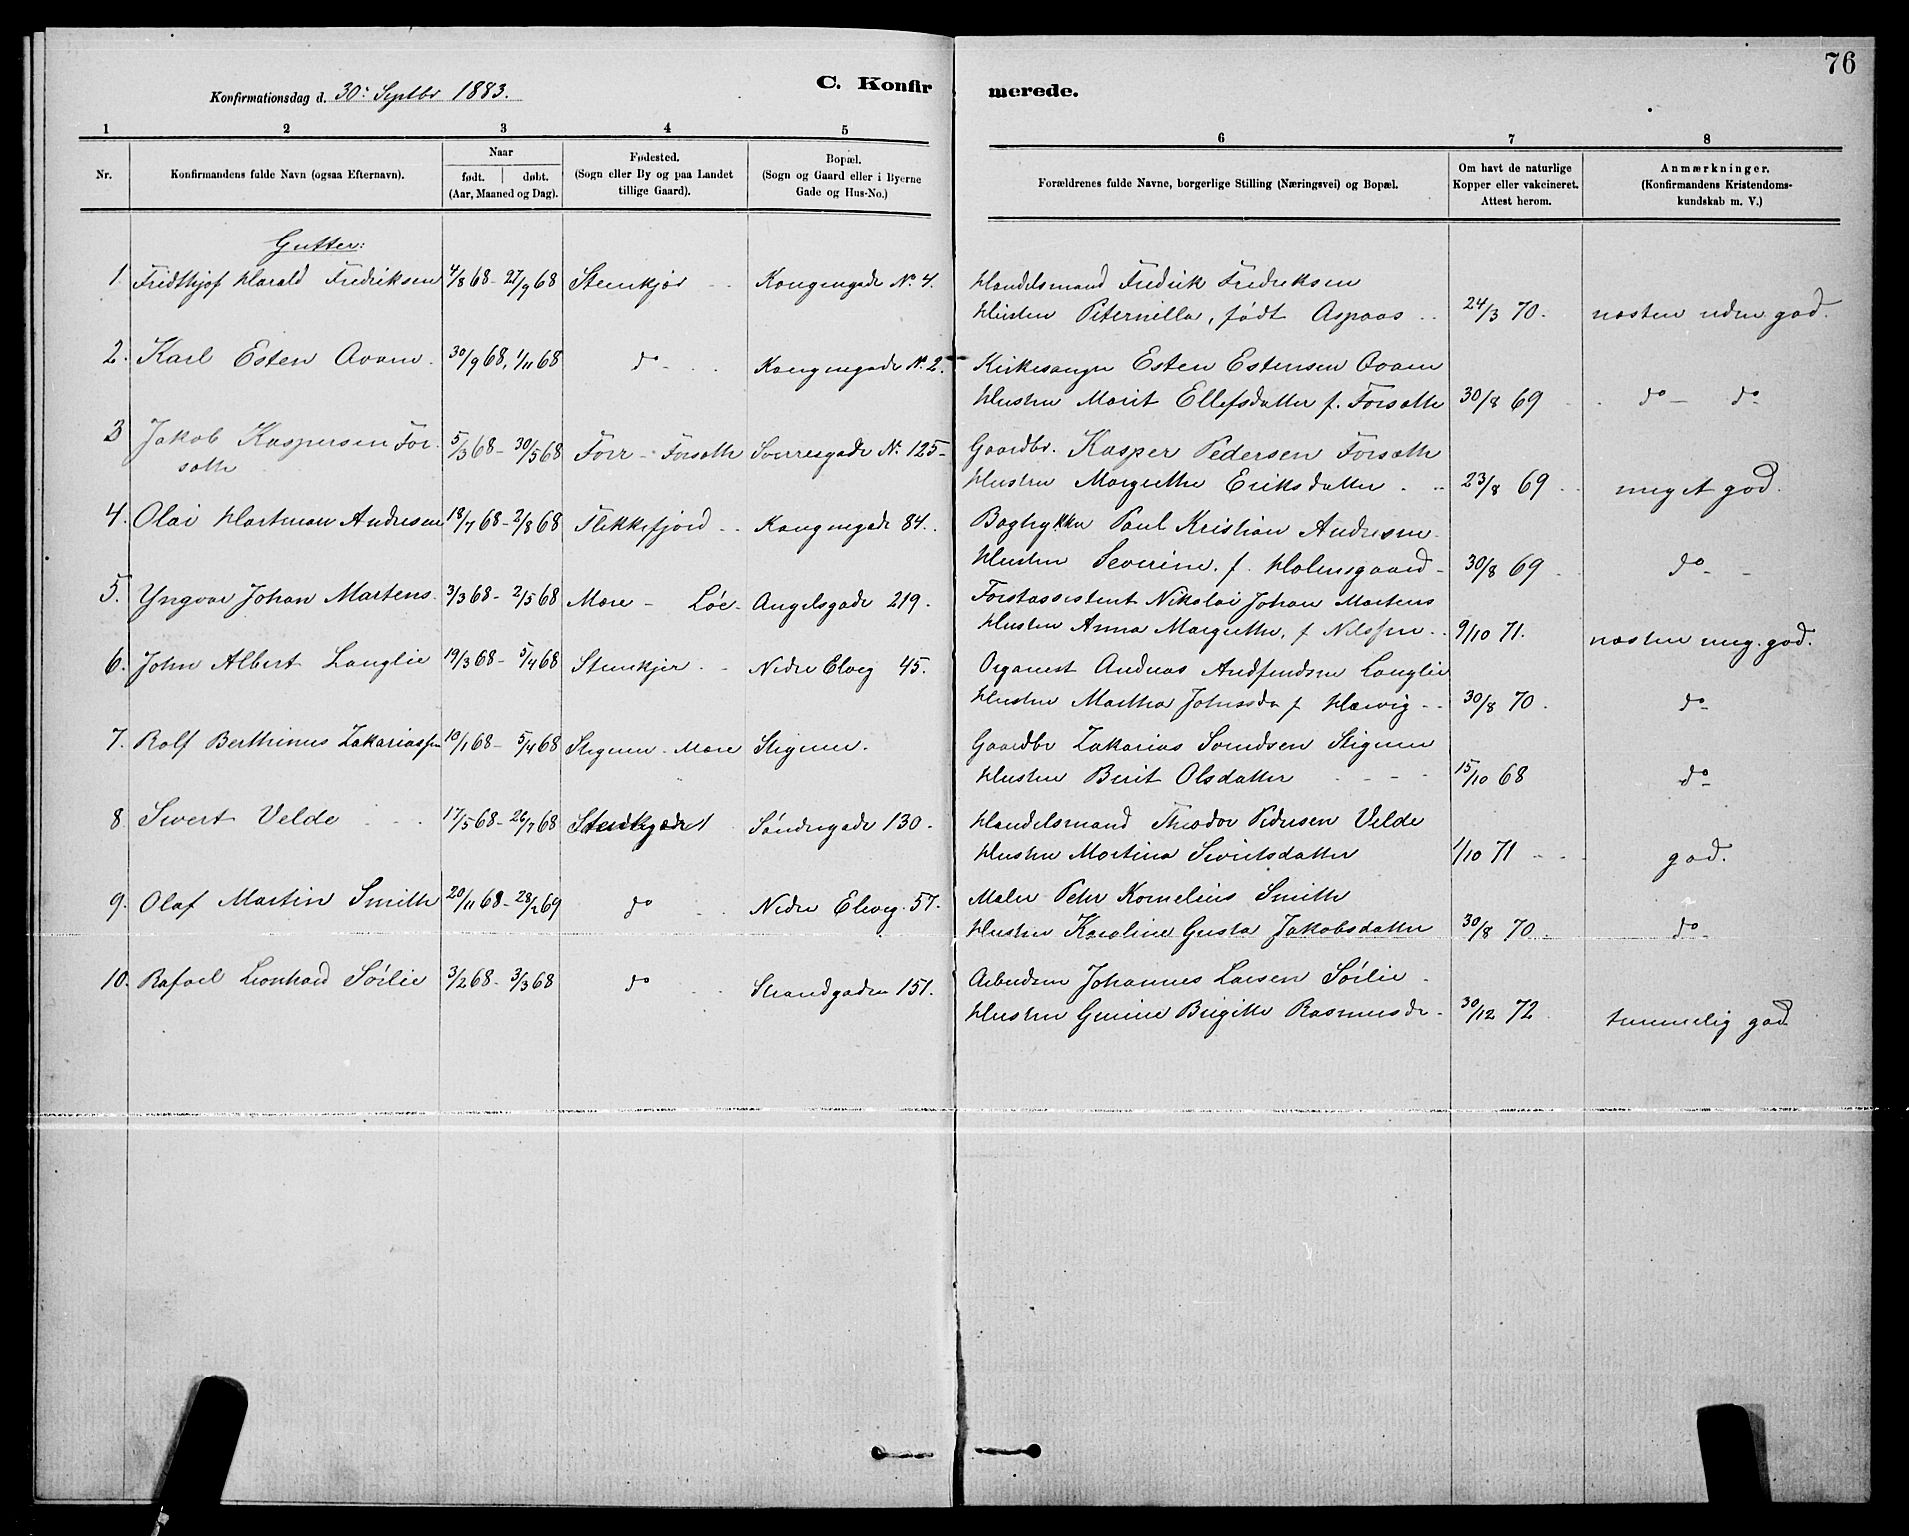 76
Konfirmationsdag d. 30: Septbr 1883.
C. Konfirmerede.
1 2 3 4 5 6 7 8
Nr.
Konfirmandens fulde Navn (ogsaa Efternavn).
Naar
født. døbt.
(Aar, Maaned og Dag).
Fødested.
(Sogn eller By og paa Landet
tillige Gaard).
Bopæl.
(Sogn og Gaard eller i Byerne
Gade og Hus-No.)
Forældrenes fulde Navne, borgerlige Stilling (Næringsvei) og Bopæl.
Om havt de naturlige
Kopper eller vakcineret.
Attest herom.
Anmærkninger.
(Konfirmandens Kristendoms-
kundskab m. V.)
Gutter:
1. Fridthjof Harald Fredriksen 4/8 68 - 27/9 68 Stenkjær Kongensgade No 4. Handelsmand Fredrik Fredriksen
Hustru Peternella, født Aspaas 24/3 70. næsten udm. god.
2. Karl Esten Avam. 30/9 68, 1/11 68 do Kongensgade No 2. Kirkesanger Esten Estensen Avam
Hustru Marit Ellefsdatter f. Forsæth 30/8 69 do - do
3 Jakob Kaspersen For-
sæth 5/3 68 - 30/5 68 Forr - Forsæth Sverresgade No 125 - Gaardbr. Kasper Pedersen Forsæth
Hustru Margrethe Eriksdatter 23/8 69 meget god.
4. Olai Hartman Andresen 18/7 68 - 2/8 68 Flekkefjord Kongensgade 84. Bogtrykker Paul Kristian Andresen
Hustru Severine f. Holensgaard - 30/8 69 do
5. Yngvar Johan Martens. 3/3 68 - 2/5 68 Mære - Løe - Angelsgade 219. Forstassistent Nikolai Johan Martens
Hustru Anna Margrethe, f Nilssen 9/10 71. næsten meg. god.
6. John Albert Langlie 19/3 68 - 5/4 68 Stenkjer Nedre Elveg 45. Organist Andreas Andfindsen Langlie
Hustru Martha Johnsda f Hævig 30/8 70. do
7. Rolf Berthinus Zakariassen 10/1 68 - 5/4 68 Stigum - Mære Stigum. Gaardbr Zakarias Svendsen Stigum
Hustru Berit Olsdatter 15/10 68 do
8 Sivert Velde 17/5 68 - 26/7 68 Stenkjær Søndregade 130. Handelsmand Theodor Pedersen Velde
Hustru Martina Sivertsdatter 1/10 71 god.
9. Olaf Martin Smith 20/11 68 - 28/2 69 do Nedre Elveg. 57. Maler Peter Kornelius Smith
Hustru Karoline Gusta Jakobsdatter 30/8 70. do
10. Rafael Leonhard Sørlie 3/2 68 - 3/3 68 do Strandgaden 151. Arbeidsm Johannes Larsen Sørlie
Hustru Gurine Birgitte Rasmusdr 30/12 72 temmelig god